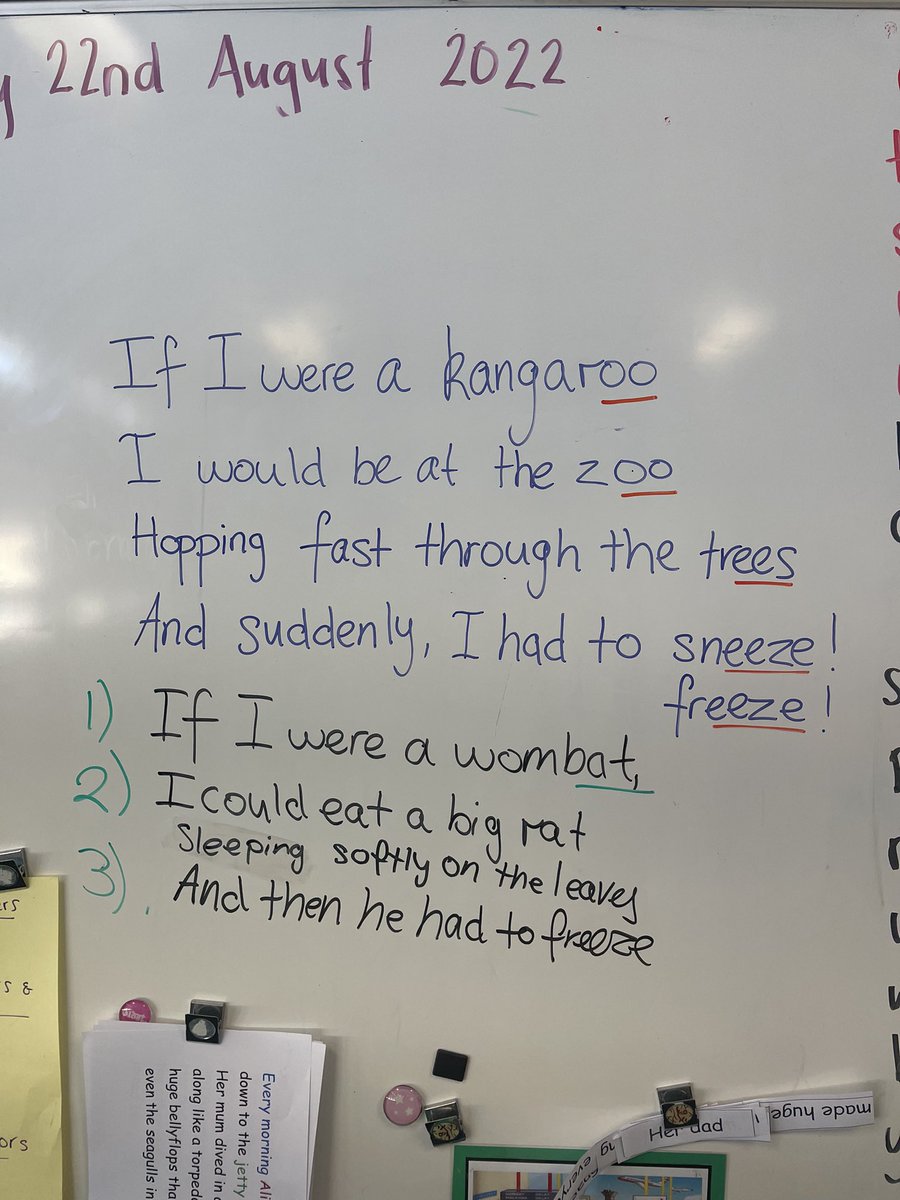 22nd August 2022
If I were a kangaroo
I would be at the zoo
Hopping fast through the trees
And suddenly, I had to sneeze!
freeze!
1) If I were a wombat,
2) I could eat a big rat
Sleeping softly on the leaves
3). And then he had to freeze
Every morning Ali
down to the jetty
Her mum dived in
along like a torped
huge bellyflops tha
even the seagulls in
Her dad
made huge